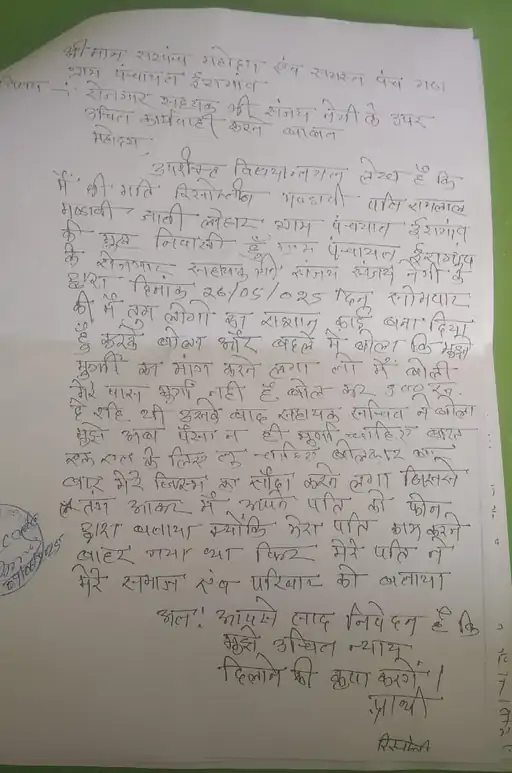 श्रीमान सरपंच महोदय एंव समस्त पंच गण
ग्राम पंचायत ईरागांव
विषय -: रोजगार सहायक श्री संजय नेगी के उपर
उचित कार्यवाही करने बाबत
महोदय,
उपरोक्त विषयान्तर्गत लेख है कि
मैं श्री मति पति रामलाल
मण्डावी जाती लोहार ग्राम पंचायत ईरागांव
की मुल निवासी हूँ ग्राम पंचायत ईरागांव
के रोजगार सहायक श्री संजय संजय नेगी के
द्वारा दिनांक 26/05/025 दिन सोमवार
को मैं तुम लोगो का राशन कार्ड बना दिया
हुँ करके बोला और बदले में बोला कि मुझे
मुर्गा का मांग करने लगा तो मैं बोली
मेरे पास मुर्गा नहीं है बोल कर 500 रु.
दे रही थी उसके बाद सहायक सचिव ने बोला
मुझे अब पैसा न ही मुर्गा चाहिए बोल
एक रात के लिए तु चाहिए बोलकर
बार मेरे जिस्म का सौदा करने लगा जिससे
तंग आकर मैं अपने पति को फोन
द्वारा बताया क्योंकि मेरा पति काम करने
बाहर गया था फिर मेरे पति ने
मेरे समाज एंव परिवार को बताया
अतः आपसे सादर निवेदन हैं कि
मुझे उचित न्याय
दिलाने की कृपा करेगें !
प्रार्थी